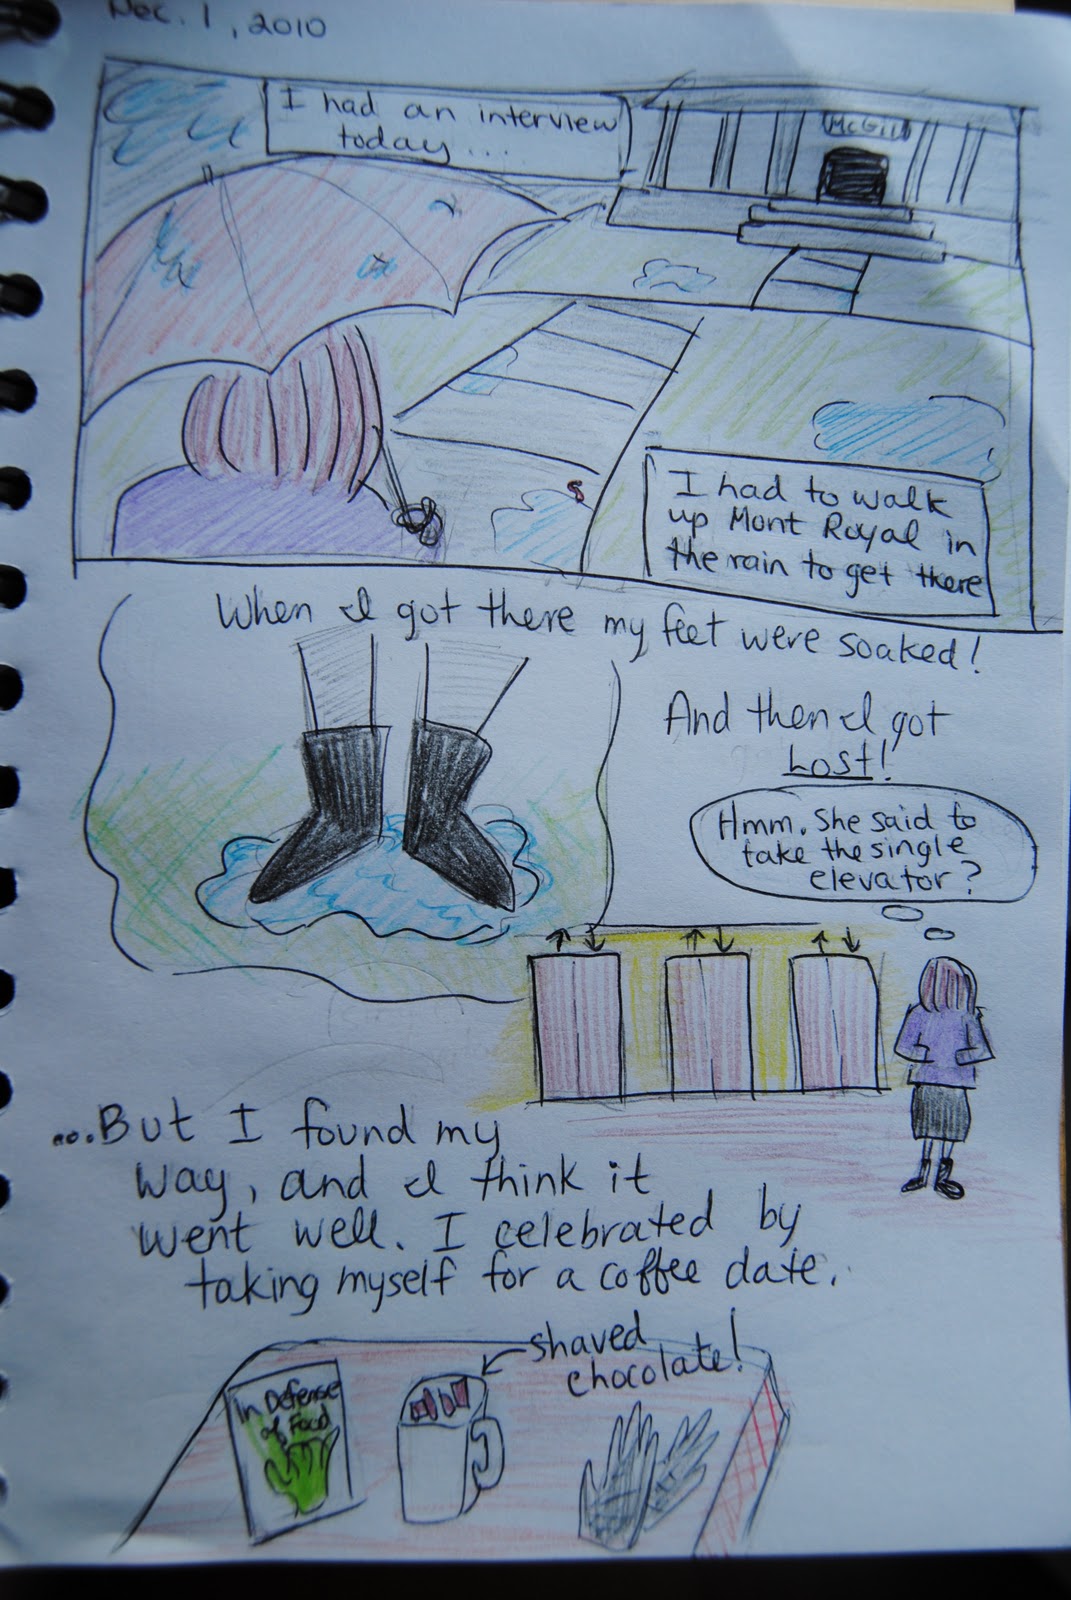 Dec. 1, 2010
I had an interview
today...
McGill
I had to walk
up Mont Royal in
the rain to get there
When I got there my feet were soaked!
And then I got
Lost!
Hmm. She said to
take the single
elevator?
...But I found my
way, and I think it
went well. I celebrated by
taking myself for a coffee date.
shaved
chocolate!
In Defense
of Food